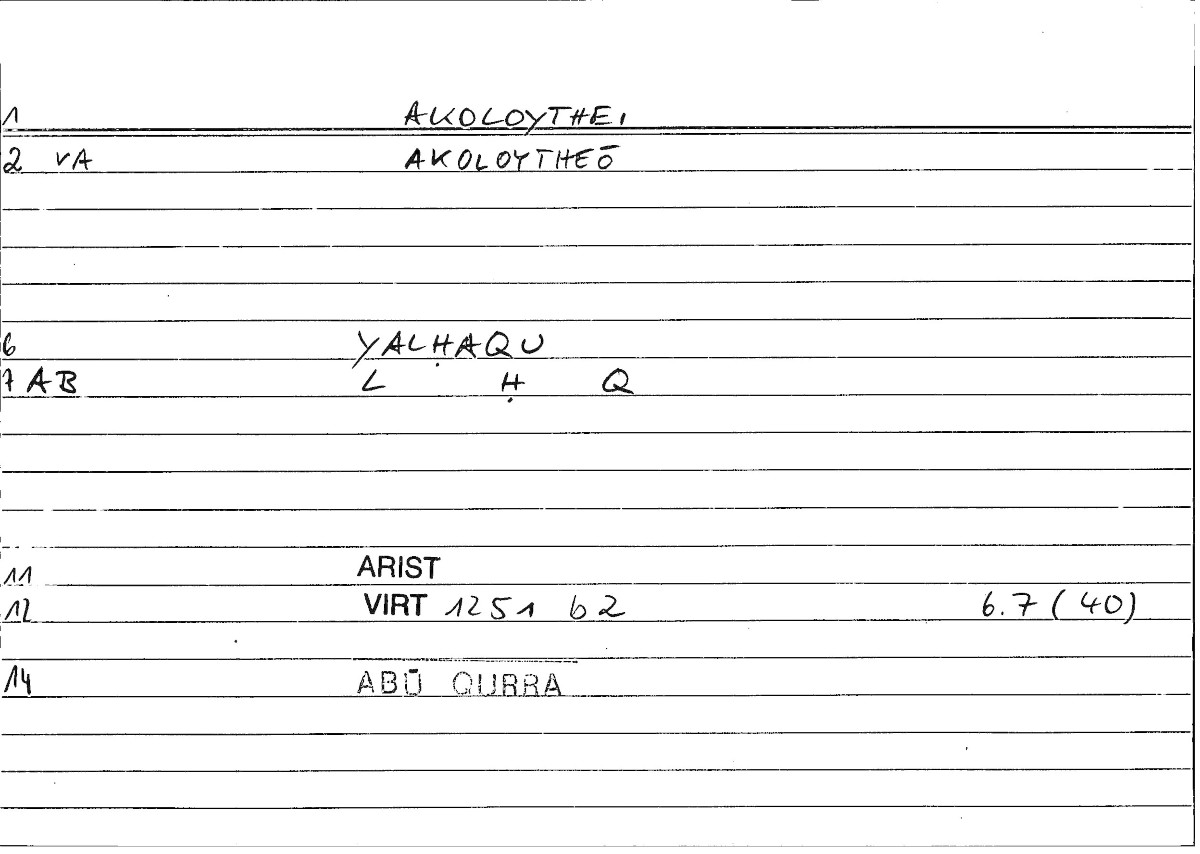 1 AKOLOYTHEI
2 VA AKOLOYTHEŌ
6 YALḤAQU
7 AB L Ḥ Q
11 ARIST
12 VIRT 1251 b2 6.7 (40)
14 ABŪ QURRA